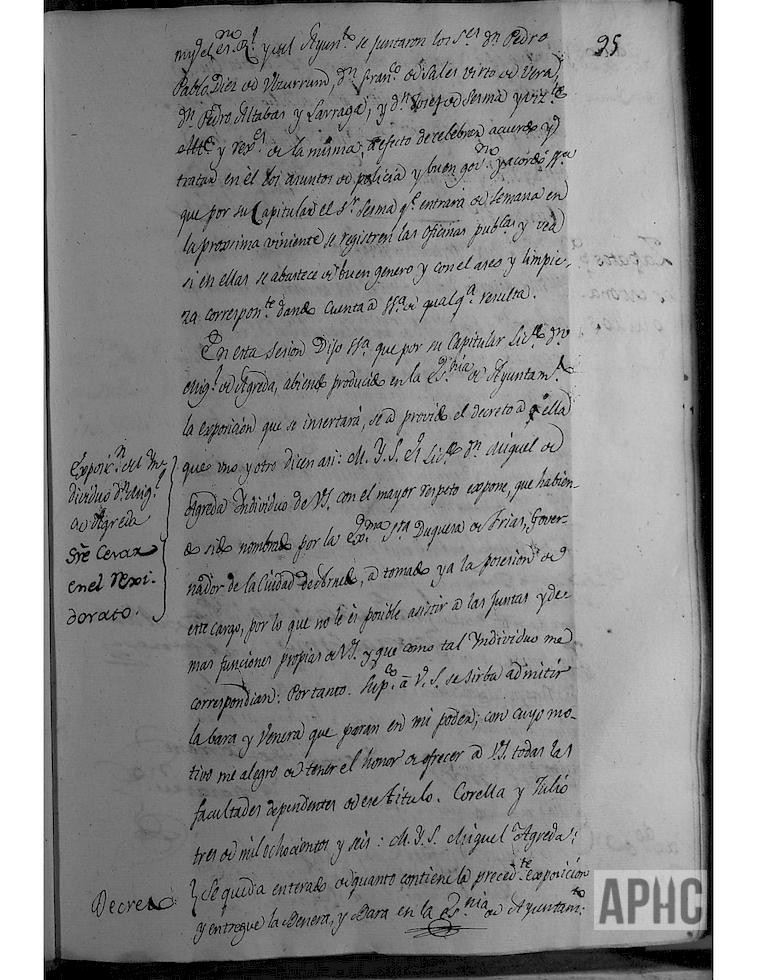 95
my del es.no R.l y del Ayun.to se juntaron los S.res D.n Pedro
Pablo Diez de Ulzurrum, D.n Fran.co de Sales Virto de Vera,
D.n Pedro Altabas y Larraga, y D.n Josef de Sesma y
Alte.s y Rex.s de la misma, a efecto de celebrar acuerdo y
tratar en él los asuntos de policia y buen gov.no y acordó
que por su Capitular el S.r Sesma q.e entrará de semana en
la proxima viniente se registren las oficinas publ.as y vea
si en ellas se abastece de buen genero y con el aseo y limpie-
za correspon.te dando cuenta a SS.a de qualq.a resulta.
En esta sesion Dijo SS.a que por su Capitular Lic.do D.n
Mig.l de Agreda, abiendo producido en la Es.nia de Ayuntam.to
la exposición que se insertará, se a proviido el decreto a ella
que uno y otro dicen asi: M. Y. S. El Lic.do D.n Miguel de
Agreda Individuo de VS. con el mayor respeto expone, que habien-
do sido nombrado por la Ex.ma S.ra Duquesa de Frias, Gover-
nador de la Ciudad de, a tomado ya la posesion de
este cargo, por lo que no le es posible asistir a las Juntas y de-
mas funciones propias de VS. y que como tal Individuo me
correspondian: Por tanto. Sup.co a V. S. se sirba admitir
la bara y Venera que paran en mi poder; con cuyo mo-
tivo me alegro de tener el honor de ofrecer a VS. todas las
facultades dependentes de ese titulo. Corella y Julio
tres de mil ochocientos y seis: M. Y. S. Miguel Agreda:
Se queda enterado de quanto contiene la preced.te exposición
y entregue la Benera, y Bara en la Es.nia de Ayuntam.to:
Exposic.n del Yn-
dividuo D.n Mig.l
de Agreda
sre Cesar
en el Rexi-
dorato.
Decreto
APHC